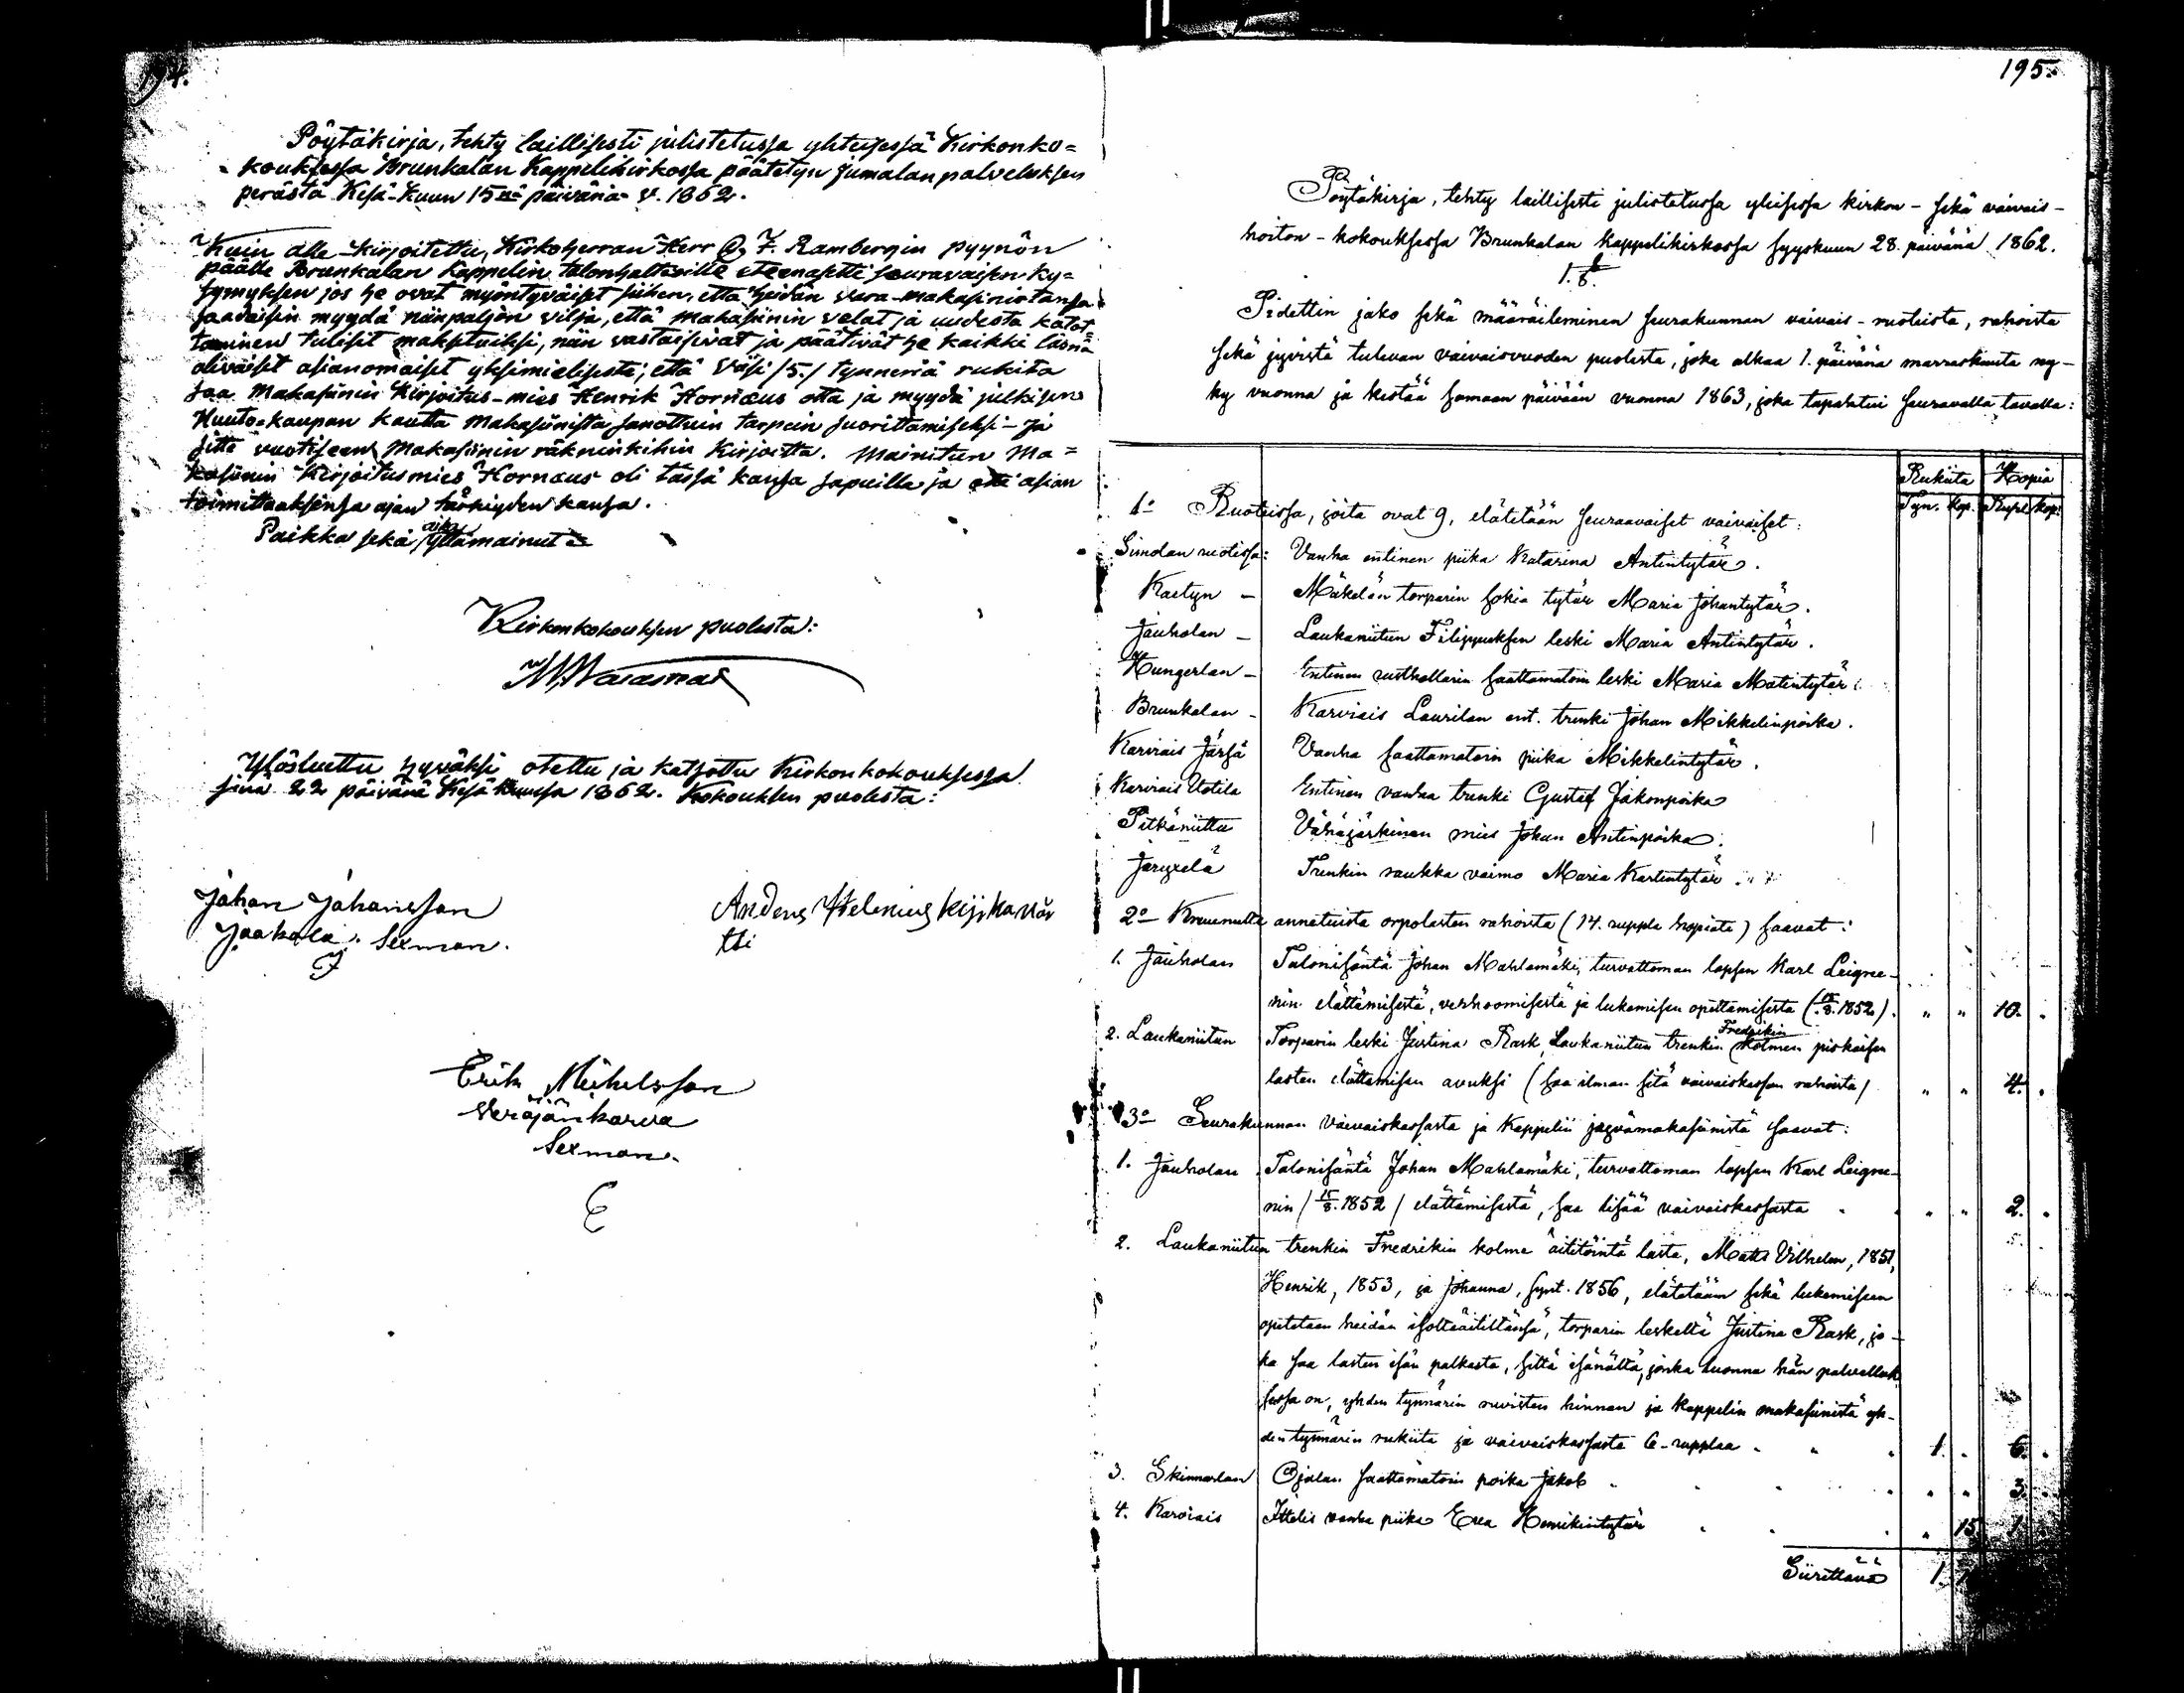 194.
Pöytäkirja, tehty laillisesti julistetussa yhteisessä Kirkonko=
kouksessa Brunkalan Kappelikirkossa päätetyn Jumalanpalveluksen
perästä Kesä-Kuun 15nä päivänä v. 1862.
Kuin alle-kirjoitettu, Kirkoherran Herr G. F. Rambergin pyynön
päälle Brunkalan Kappelin talonhaltioille eteenasetti seuravaisen ky=
symyksen jos he ovat myöntyväiset siihen, että heidän vara-makasinistansa
saadaisin myydä niinpaljon vilja, että makasiinin velat ja uudesta katot
taminen tulisit maksetuiksi, niin vastaisivat ja päätivät he kaikki läsnä
olevaiset asianomaiset yksimielisesti, että Viisi /5./ tynneriä rukita
saa Makasiinin Kirjoitus-mies Henrik Hornæus otta ja myydä julkisen
Huuto-kaupan kautta Makasiinista sanottuin tarpein suorittamiseksi - ja
sitte vuotiseen Makasiinin räkninkihin kirjoitta. Mainitun Ma=
kasiinin Kirjoitusmies Hornæus oli tässä kansa sapuilla ja otti asian
toimittaaksensa ajan kansa.
Paikka sekä aika yllämainut
Kirkonkokouksen puolesta:
Ylösluettu hyväksi otettu ja katsottu Kirkonkokouksessa
sinä 22 päivänä Kesäkuussa 1862. Kokouksen puolesta:
Johan Johansson
Jaakola. Sexman.
J
Anders Helenius Kijkanör
tti
Erik Michelsson
Veräjänkorva
Sexman.
E
195.
Pöytäkirja, tehty laillisesti julistetussa yleisessä kirkon- sekä vaivais-
hoiton-kokouksessa Brunkalan kappelikirkossa syyskuun 28. päivänä 1862.
1. §.
Pidettin jako sekä määräileminen seurakunnan vaivais-ruoteista, rahoista
sekä jyvistä tulevan vaivaisvuoden puolesta, joka alkaa 1. päivänä marraskuuta ny-
ky vuonna ja kestää samaan päivään vuonna 1863, joka tapahtui seuravalla tavalla:
Rukiita Hopia
Tyn. kap. Rupl. kop.
1o Ruoteissa, joita ovat 9, elätetään seuraavaiset vaivaiset:
Simolan ruotissa: Vanha entinen piika Katarina Antintytär.
Kaetyn - Mäkelän torparin sokia tytär Maria Johantytär.
Jauholan - Laukaniitun Filippuksen leski Maria Antintytär.
Hungerlan - Entinen rusthollarin saattamatoin leski Maria Matintytär.
Brunkalan - Karviais Laurilan ent. trenki Johan Mikkelinpoika.
Karviais Järsä Vanha saattamatoin piika Mikkelintytär.
Karviais Uotila Entinen vanha trenki Gustaf Jakonpoika
Pitkäniittu Vähäjärkinen mies Johan Antinpoika.
Jarypelä Trenkin raukka vaimo Maria Kartintytär.
2o Kruunulta annetuista orpolasten rahoista (14. rupla hopiata) saavat:
1. Jauholan Talonisäntä Johan Mahlamäki, turvattoman lapsen Karl Leigne-
nin elättämisestä, verhoomisesta ja lukemisen opettamisesta (15/8. 1852). " " 10. .
2. Laukaniitun Torparin leski Justina Rask, Laukaniitun trenkin Fredrikin kolmen piskuisen
lasten elättämisen avuksi (saa ilman sitä vaivaiskassan rahoista) " " 4. .
3o Seurakunnan vaivaiskassasta ja kappelin jyvämakasiinista saavat:
1. Jauholan Talonisäntä Johan Mahlamäki, turvattoman lapsen Karl Leigne-
nin (15/8. 1852) elättämisestä, saa lisää vaivaiskassasta " " 2. .
2. Laukaniitun trenkin Fredrikin kolme äititöintä lasta, Matts Vilhelm, 1851,
Henrik, 1853, ja Johanna, synt. 1856, elätetään sekä lukemiseen
opetetaan heidän isoltäitiltänsä, torparin leskeltä Justina Rask, jo-
ka saa lasten isän palkasta, siltä isänältä, jonka luonna hän palveluk-
sessa on, yhden tynnärin ruisten hinnan ja kappelin makasiinista yh-
den tynnärin rukiita ja vaivaiskassasta 6-ruplaa 1. " 6. .
3. Skinnarlan Ojalan saattamatoin poika Jakob " " 3. .
4. Karviais Ittelis vanha piika Eva Henrikintytär " 15 1.
Siirettävä 1.